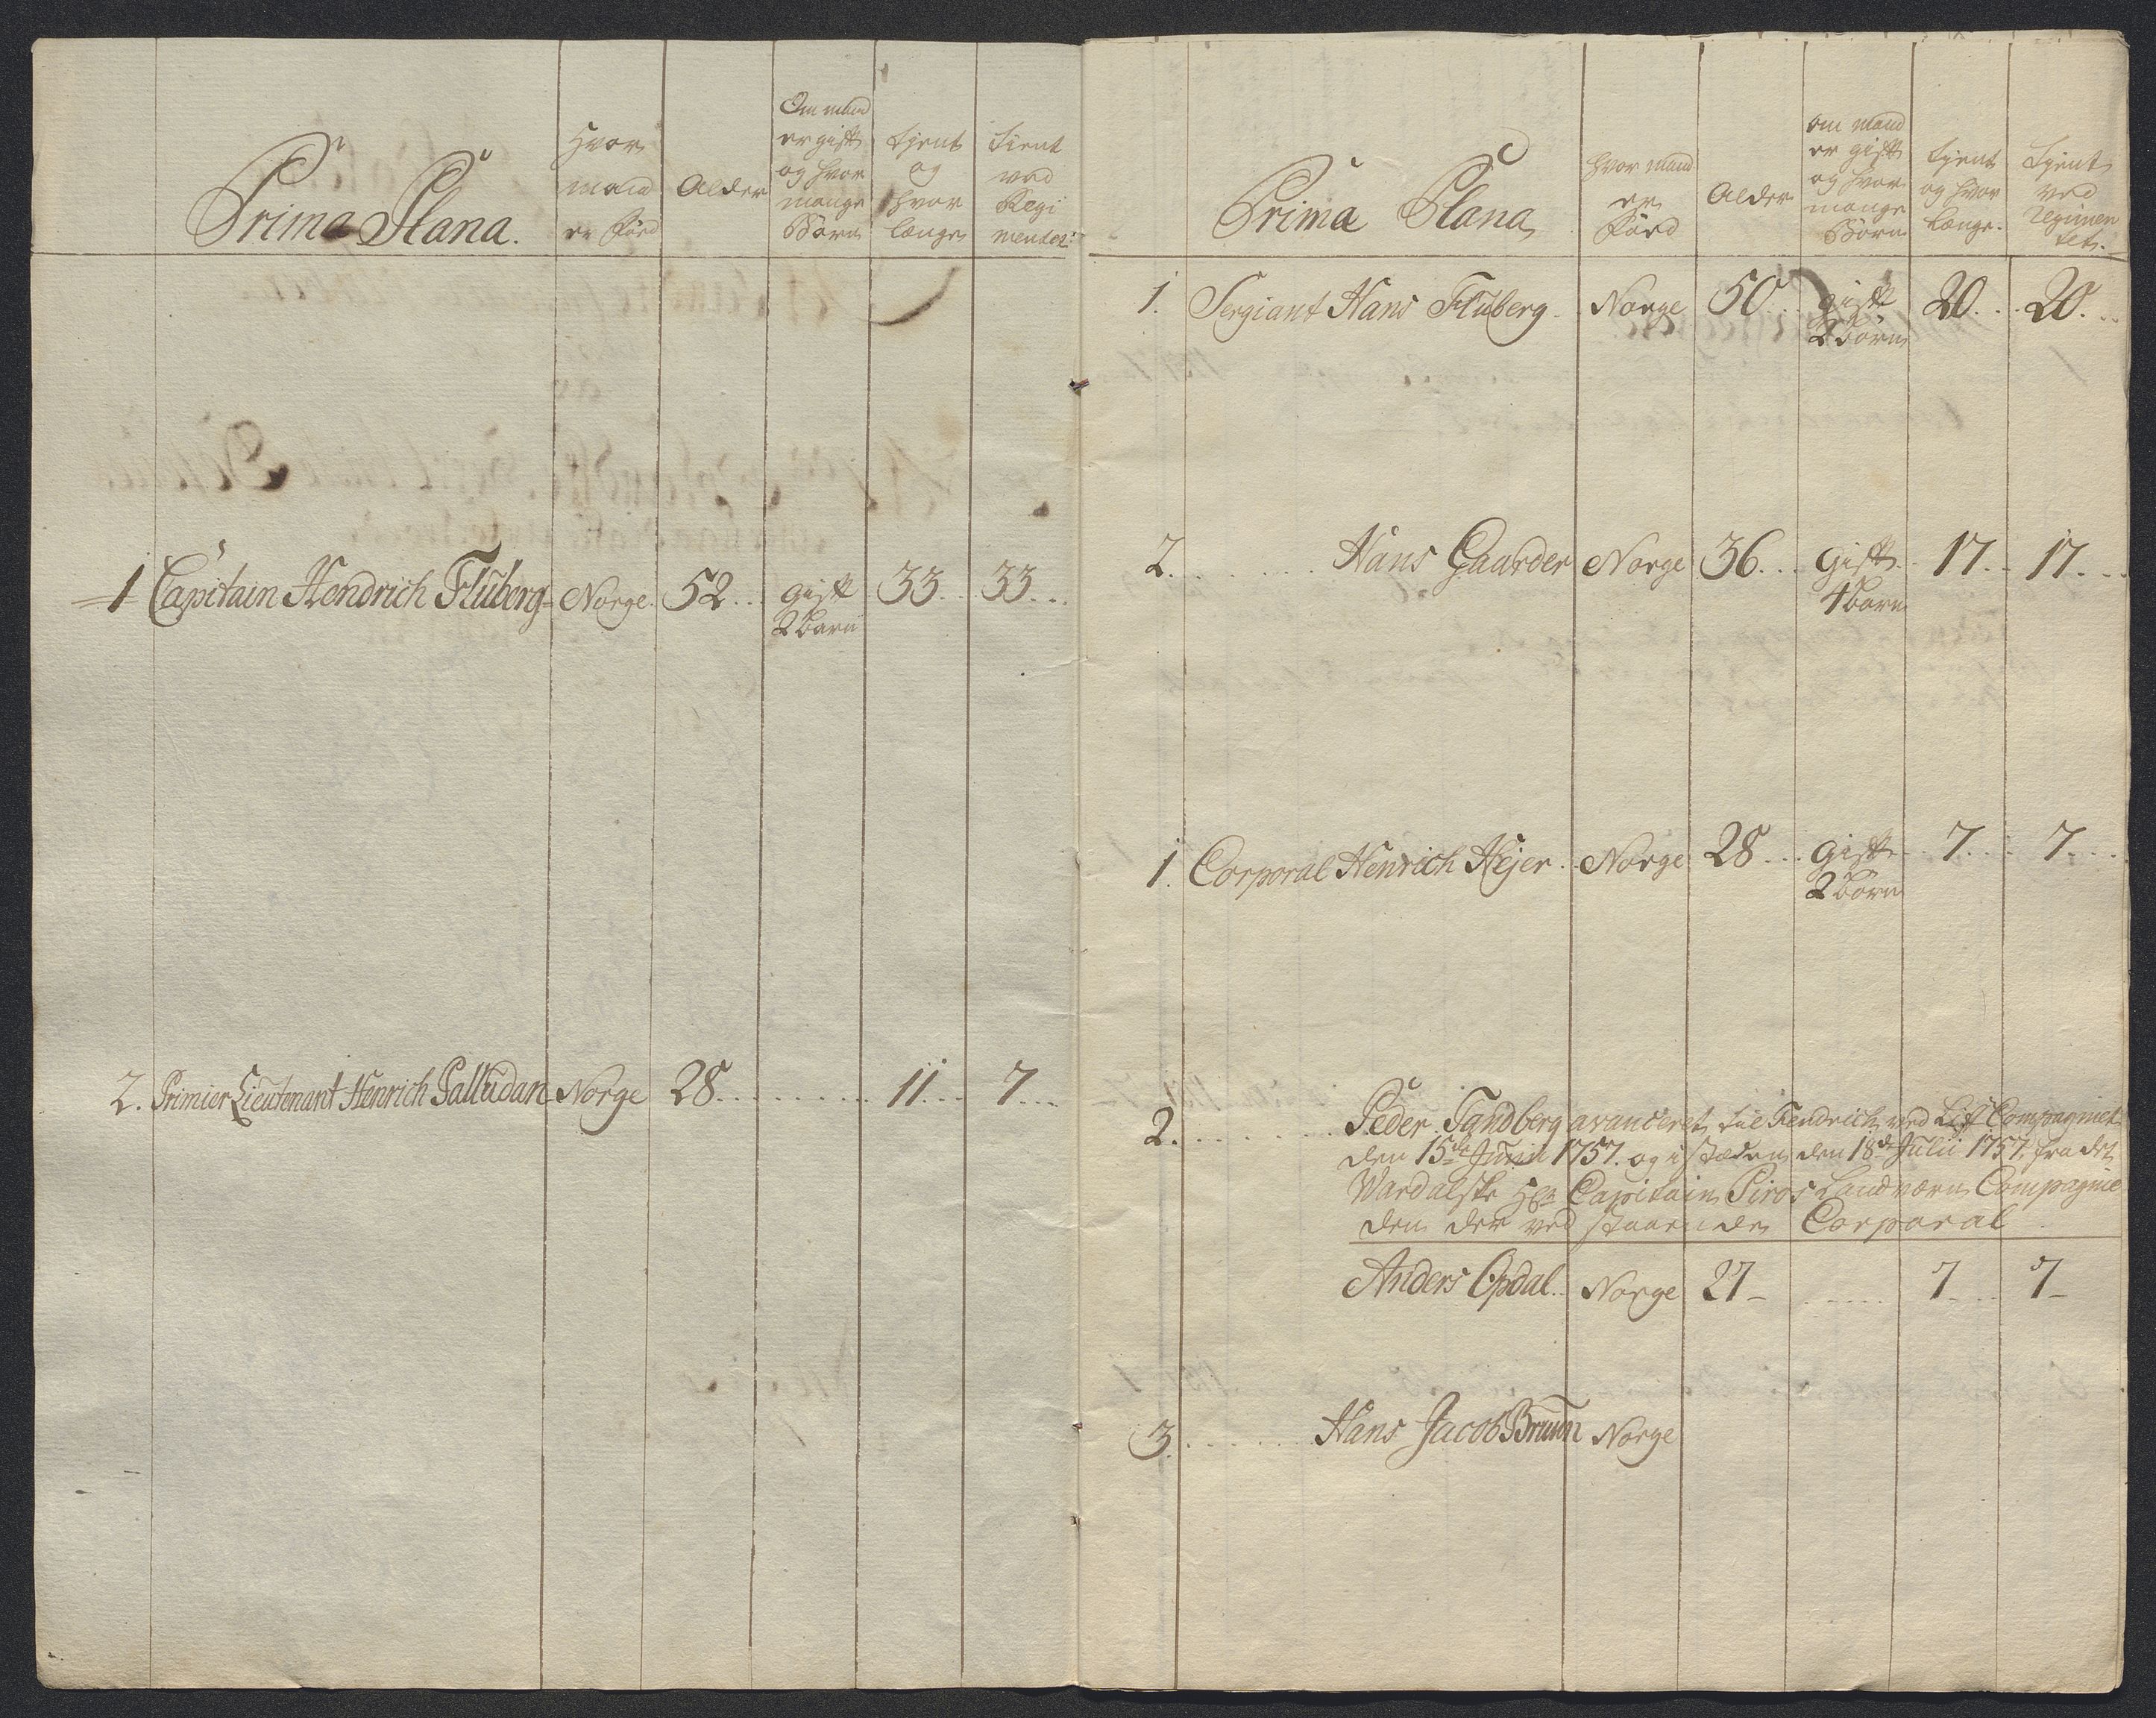 Prima Plana.
Hvor
mand
er Föed
Alder
Om mand
er gift
og hvor
mange
Börn
tjent
og
hvor
længe
tient
ved
Regi
mentet:
1 Capitain Hendrich Fluberg Norge. 52... gift 33... 33...
2 barn
2. Primier Lieutenant Henrich Palludan Norge 28......... 11... 7...
Prima Plana
hvor mand
er
Föed
Alder
om mand
er gift
og hvor
mange
Börn
tjent
og hvor
længe.
tjent
ved
Regimen
tet.
1. Sergiant Hans Fluberg. Norge 50... gift 20... 20...
2 börn
2. ...... Hans Gaarder Norge 36... gift. 17... 17...
4 barn
1. Corporal Henrich Hejer. Norge 28... gift 7... 7...
2 börn
2. ...... Peder Tandberg avanceret til Fendrich ved Lif Compagniet
den 15de Junii 1757. og i stæden den 18de Julii 1757. fra det
Wardalske Hr Capitain Piros Landværn Compagnie
den der ved staaende Corporal.
Anders Opdal.. Norge 27- ...... 7... 7-
3. ...... Hans Jacob Bruun Norge